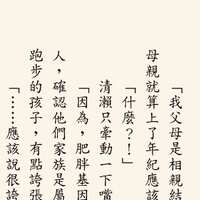 「我父母是相親結
母親就算上了年紀應該
「什麼？！」
清瀨只牽動一下嘴
「因為，肥胖基因
人，確認他們家族是屬
跑步的孩子，有點誇張
「……應該說很誇